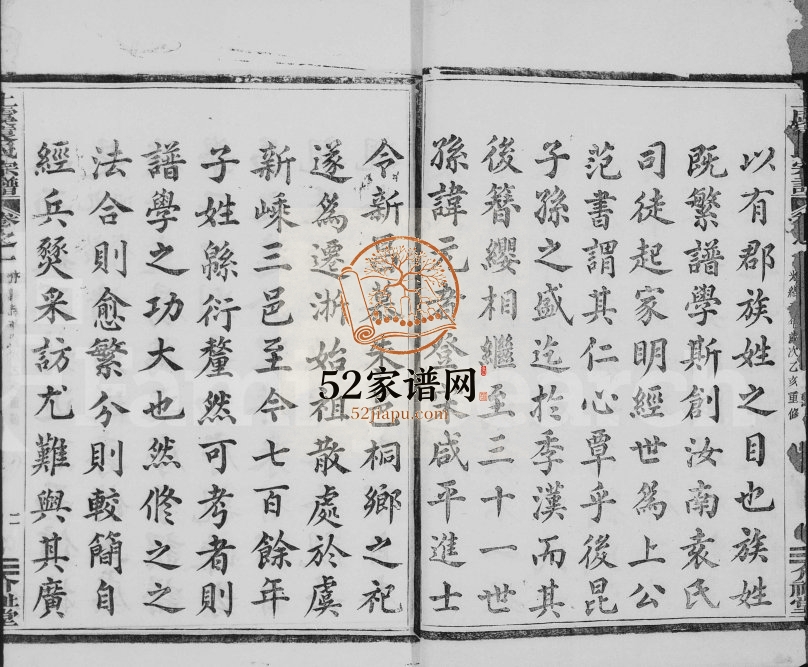 以有郡族姓之目也族姓
既繁譜學斯創汝南袁氏
司徒起家明經世為上公
范書謂其仁心覃乎後昆
子孫之盛迄於季漢而其
後簪纓相繼至三十一世
孫諱元 登 咸平進士
令新 慕朱邑桐鄉之祀
遂爲遷浙始祖散處於虞
新嵊三邑至今七百餘年
子姓緜衍釐然可考者則
譜學之功大也然修之之
法合則愈繁分則較簡自
經兵燹采訪尤難與其廣
歲次乙亥重修
二
52家谱网
52jiapu.com